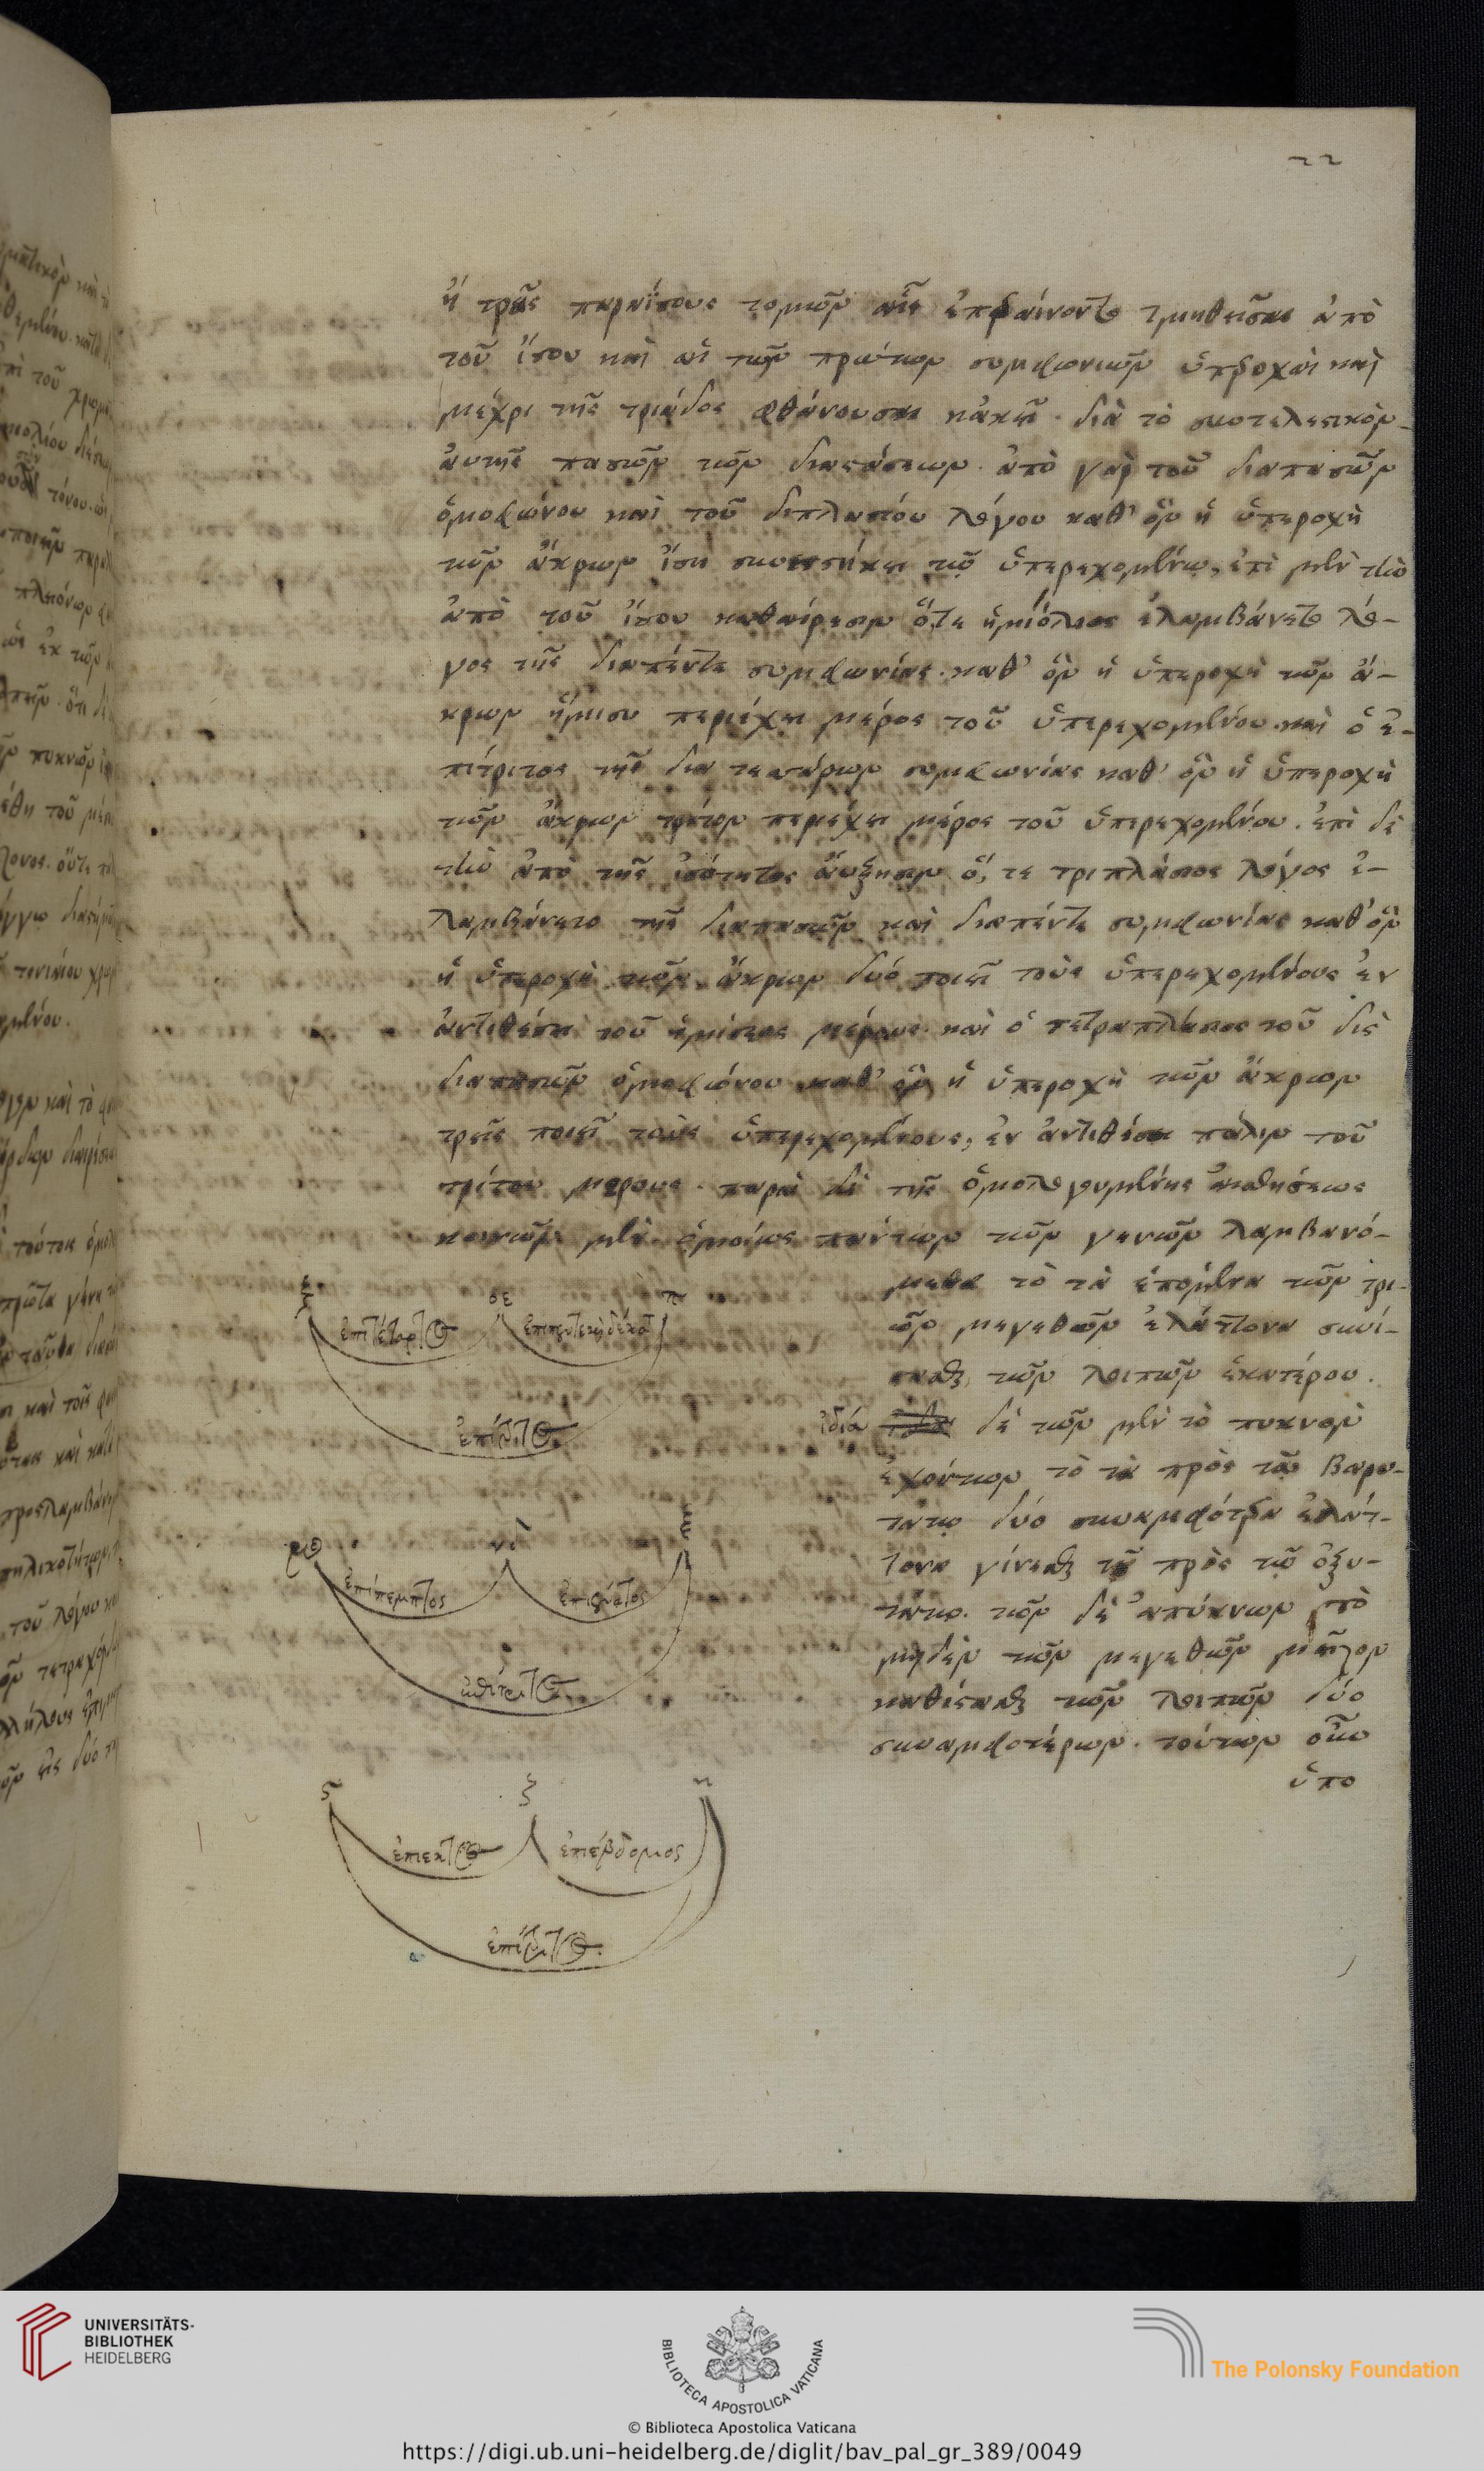 22
ἢ τρεῖς παρίσους τομῶν αἷς ἐπεραίνοντο τμηθεῖσαι ἀπὸ
τοῦ ἴσου καὶ αἱ τῶν πρώτων συμφωνιῶν ὑπεροχαὶ καὶ
μέχρι τῆς τριάδος φθάνουσαι κἀκεῖ. διὰ τὸ συντελεστικὸν
αὐτῆς πασῶν τῶν διαστάσεων. ἀπὸ γὰρ τοῦ διαπασῶν
ὁμοφώνου καὶ τοῦ διπλασίου λόγου καθ' ὃν ἡ ὑπεροχὴ
τῶν ἄκρων ἴση συνεστήκει τῷ ὑπερεχομένῳ, ἐπὶ μὲν τὴν
ἀπὸ τοῦ ἴσου καθαίρεσιν ὅ,τε ἡμιόλιος ἐλαμβάνετο λό-
γος τῆς διαπέντε συμφωνίας. καθ' ὃν ἡ ὑπεροχὴ τῶν ἄ-
κρων ἥμισυ περιέχει μέρος τοῦ ὑπερεχομένου. καὶ ὁ ἐ-
πίτριτος τῆς δια τεσσάρων συμφωνίας καθ' ὃν ἡ ὑπεροχὴ
τῶν ἄκρων τρίτον περιέχει μέρος τοῦ ὑπερεχομένου. ἐπὶ δὲ
τὴν ἀπὸ τῆς ἰσότητος αὔξησιν ὅ, τε τριπλάσιος λόγος ἐ-
λαμβάνετο τῆς διαπασῶν καὶ διαπέντε συμφωνίας καθ' ὃν
ἡ ὑπεροχὴ τῶν ἄκρων δύο ποιεῖ τοὺς ὑπερεχομένους ἐν
ἀντιθέσει τοῦ ἡμίσεος μέρους. καὶ ὁ τετραπλάσιος τοῦ δὶς
διαπασῶν ὁμοφώνου καθ' ὃν ἡ ὑπεροχὴ τῶν ἄκρων
τρεῖς ποιεῖ τοὺς ὑπερεχομένους, ἐν ἀντιθέσει πάλιν τοῦ
τρίτου μέρους. παρὰ δὲ τῆς ὁμολογουμένης αἰσθήσεως
κοινῶς μὲν ὁμοίως πάντων τῶν γενῶν λαμβανό-
μεθα τὸ τὰ ἑπόμενα τῶν τρι-
ῶν μεγεθῶν ἐλάττονα συνί-
στασθαι τῶν λοιπῶν ἑκατέρου.
ἰδίᾳ δὲ τῶν μὲν τὸ πυκνὸν
ἐχόντων τὸ τὰ πρὸς τῷ βαρυ-
τάτῳ δύο συναμφότερα ἐλάτ-
τονα γίνεσθαι τοῦ πρὸς τῷ ὀξυ-
τάτῳ. τῶν δὲ ἀπύκνων τὸ
μηδὲν τῶν μεγεθῶν μεῖζον
καθίστασθαι τῶν λοιπῶν δύο
συναμφοτέρων. τούτων οὖν
ὑπο
ξ οε π
ἐπιτέταρτος ἐπιπεντεκαιδέκατος
ἐπίτριτος
ἐπίπεμπτος ἐπιένατος
ἐπίτριτος
ϛ ζ η
ἐπίεκτος ἐπιέβδομος
ἐπίτριτος
UNIVERSITÄTS-
BIBLIOTHEK
HEIDELBERG
BIBLIOTECA APOSTOLICA VATICANA
The Polonsky Foundation
© Biblioteca Apostolica Vaticana
https://digi.ub.uni-heidelberg.de/diglit/bav_pal_gr_389/0049